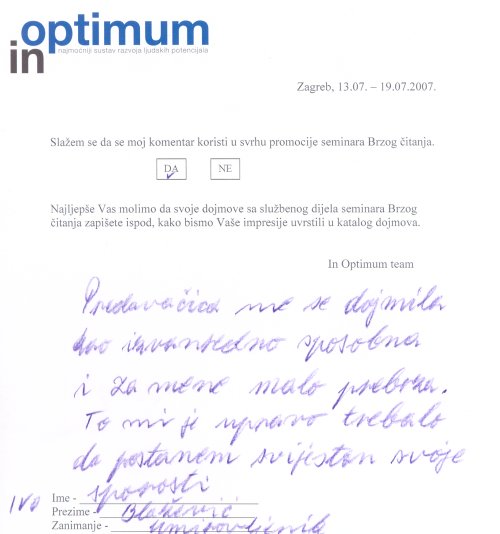 in optimum
najmoćniji sustav razvoja ljudskih potencijala
Zagreb, 13.07. – 19.07.2007.
Slažem se da se moj komentar koristi u svrhu promocije seminara Brzog čitanja.
DA NE
Najljepše Vas molimo da svoje dojmove sa službenog dijela seminara Brzog
čitanja zapišete ispod, kako bismo Vaše impresije uvrstili u katalog dojmova.
In Optimum team
Predavačica me se dojmila
kao izvanredno sposobna
i za mene malo prebrza.
To mi je upravo trebalo
da postanem svijestan svoje
sporosti
Ime -
IVO
Prezime - Blažević
Zanimanje - Umirovljenik